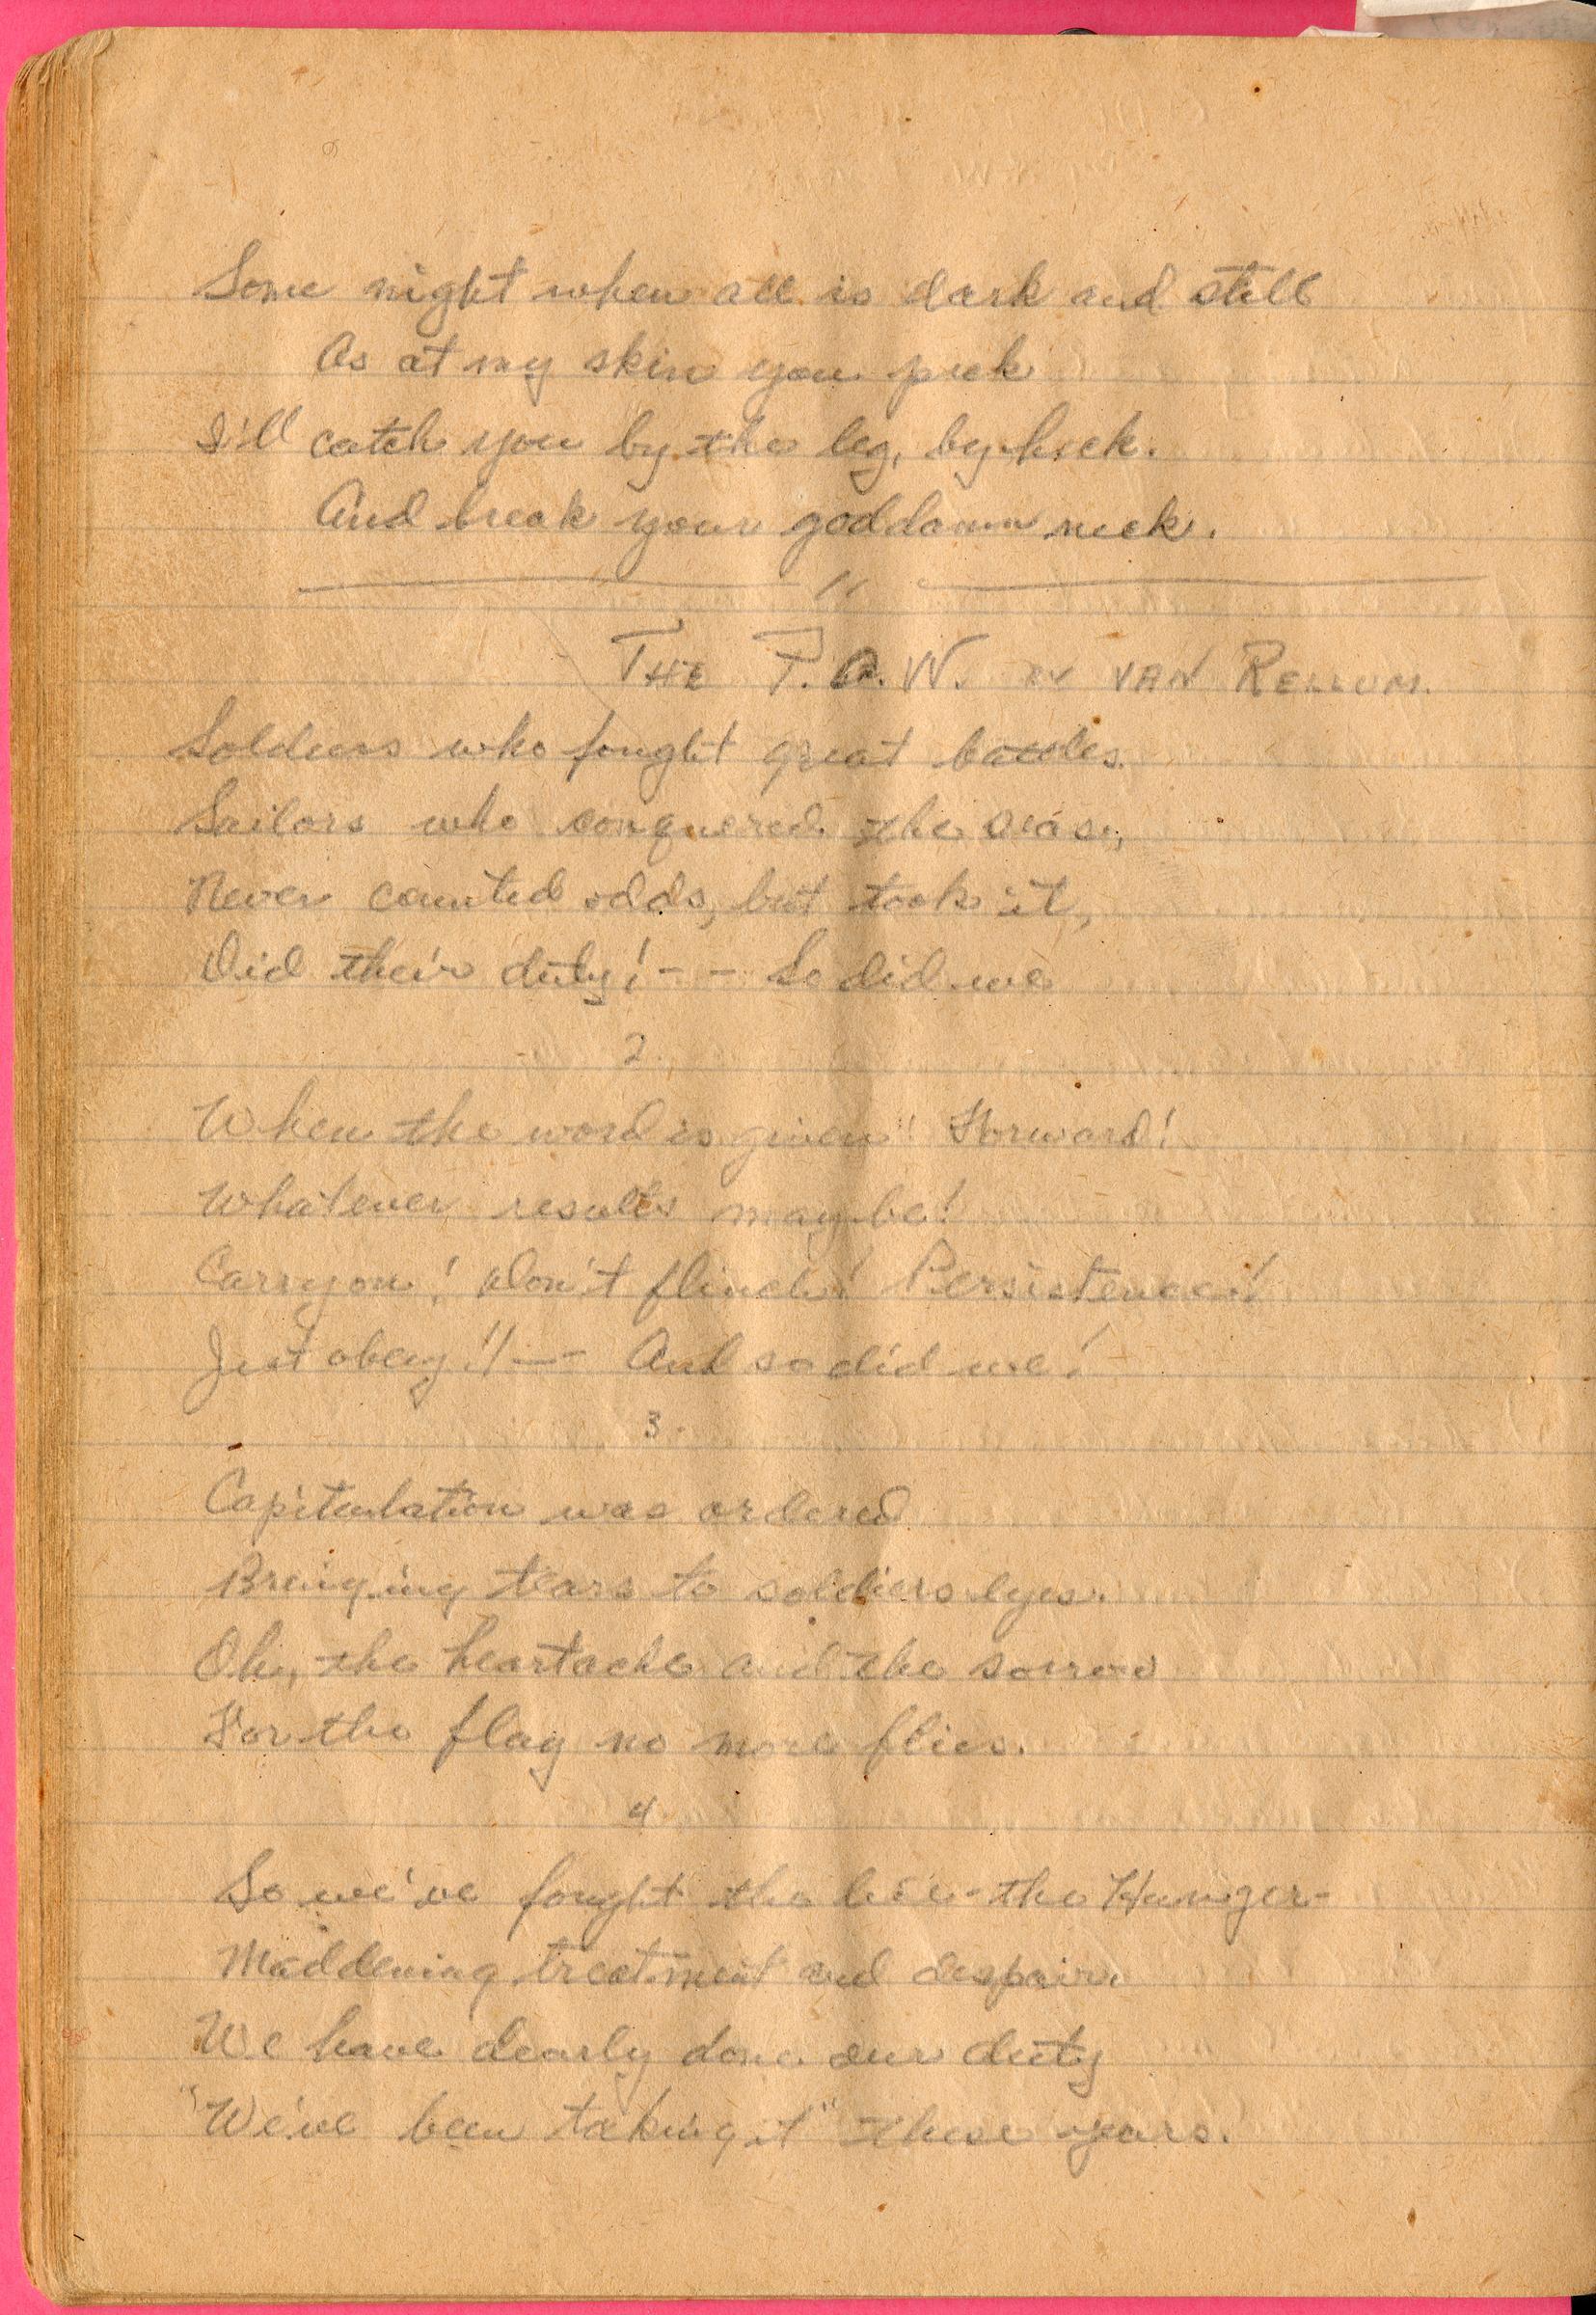 Some night when all is dark and still
As at my skin you peck
I'll catch you by the leg, by heck.
And break your goddamn neck.
The P.O.W. by Van
Soldiers who fought great battles.
Sailors who conquered the seas,
Never counted odds, but took it,
Did their duty! - - So did we
2.
When the word is given " Forward!
Whatever results may be!
Carry on! Don't flinch! Persistence!
Just obey!! -- And so did we!
3.
Capitulation was ordered
Bringing tears to soldiers eyes.
Oh, the heartache and the sorrow
For the flag no more flies.
4
So we've fought the - the Hunger -
Maddening treatment and despair.
We have dearly done our duty
"We've been taking it" these years.